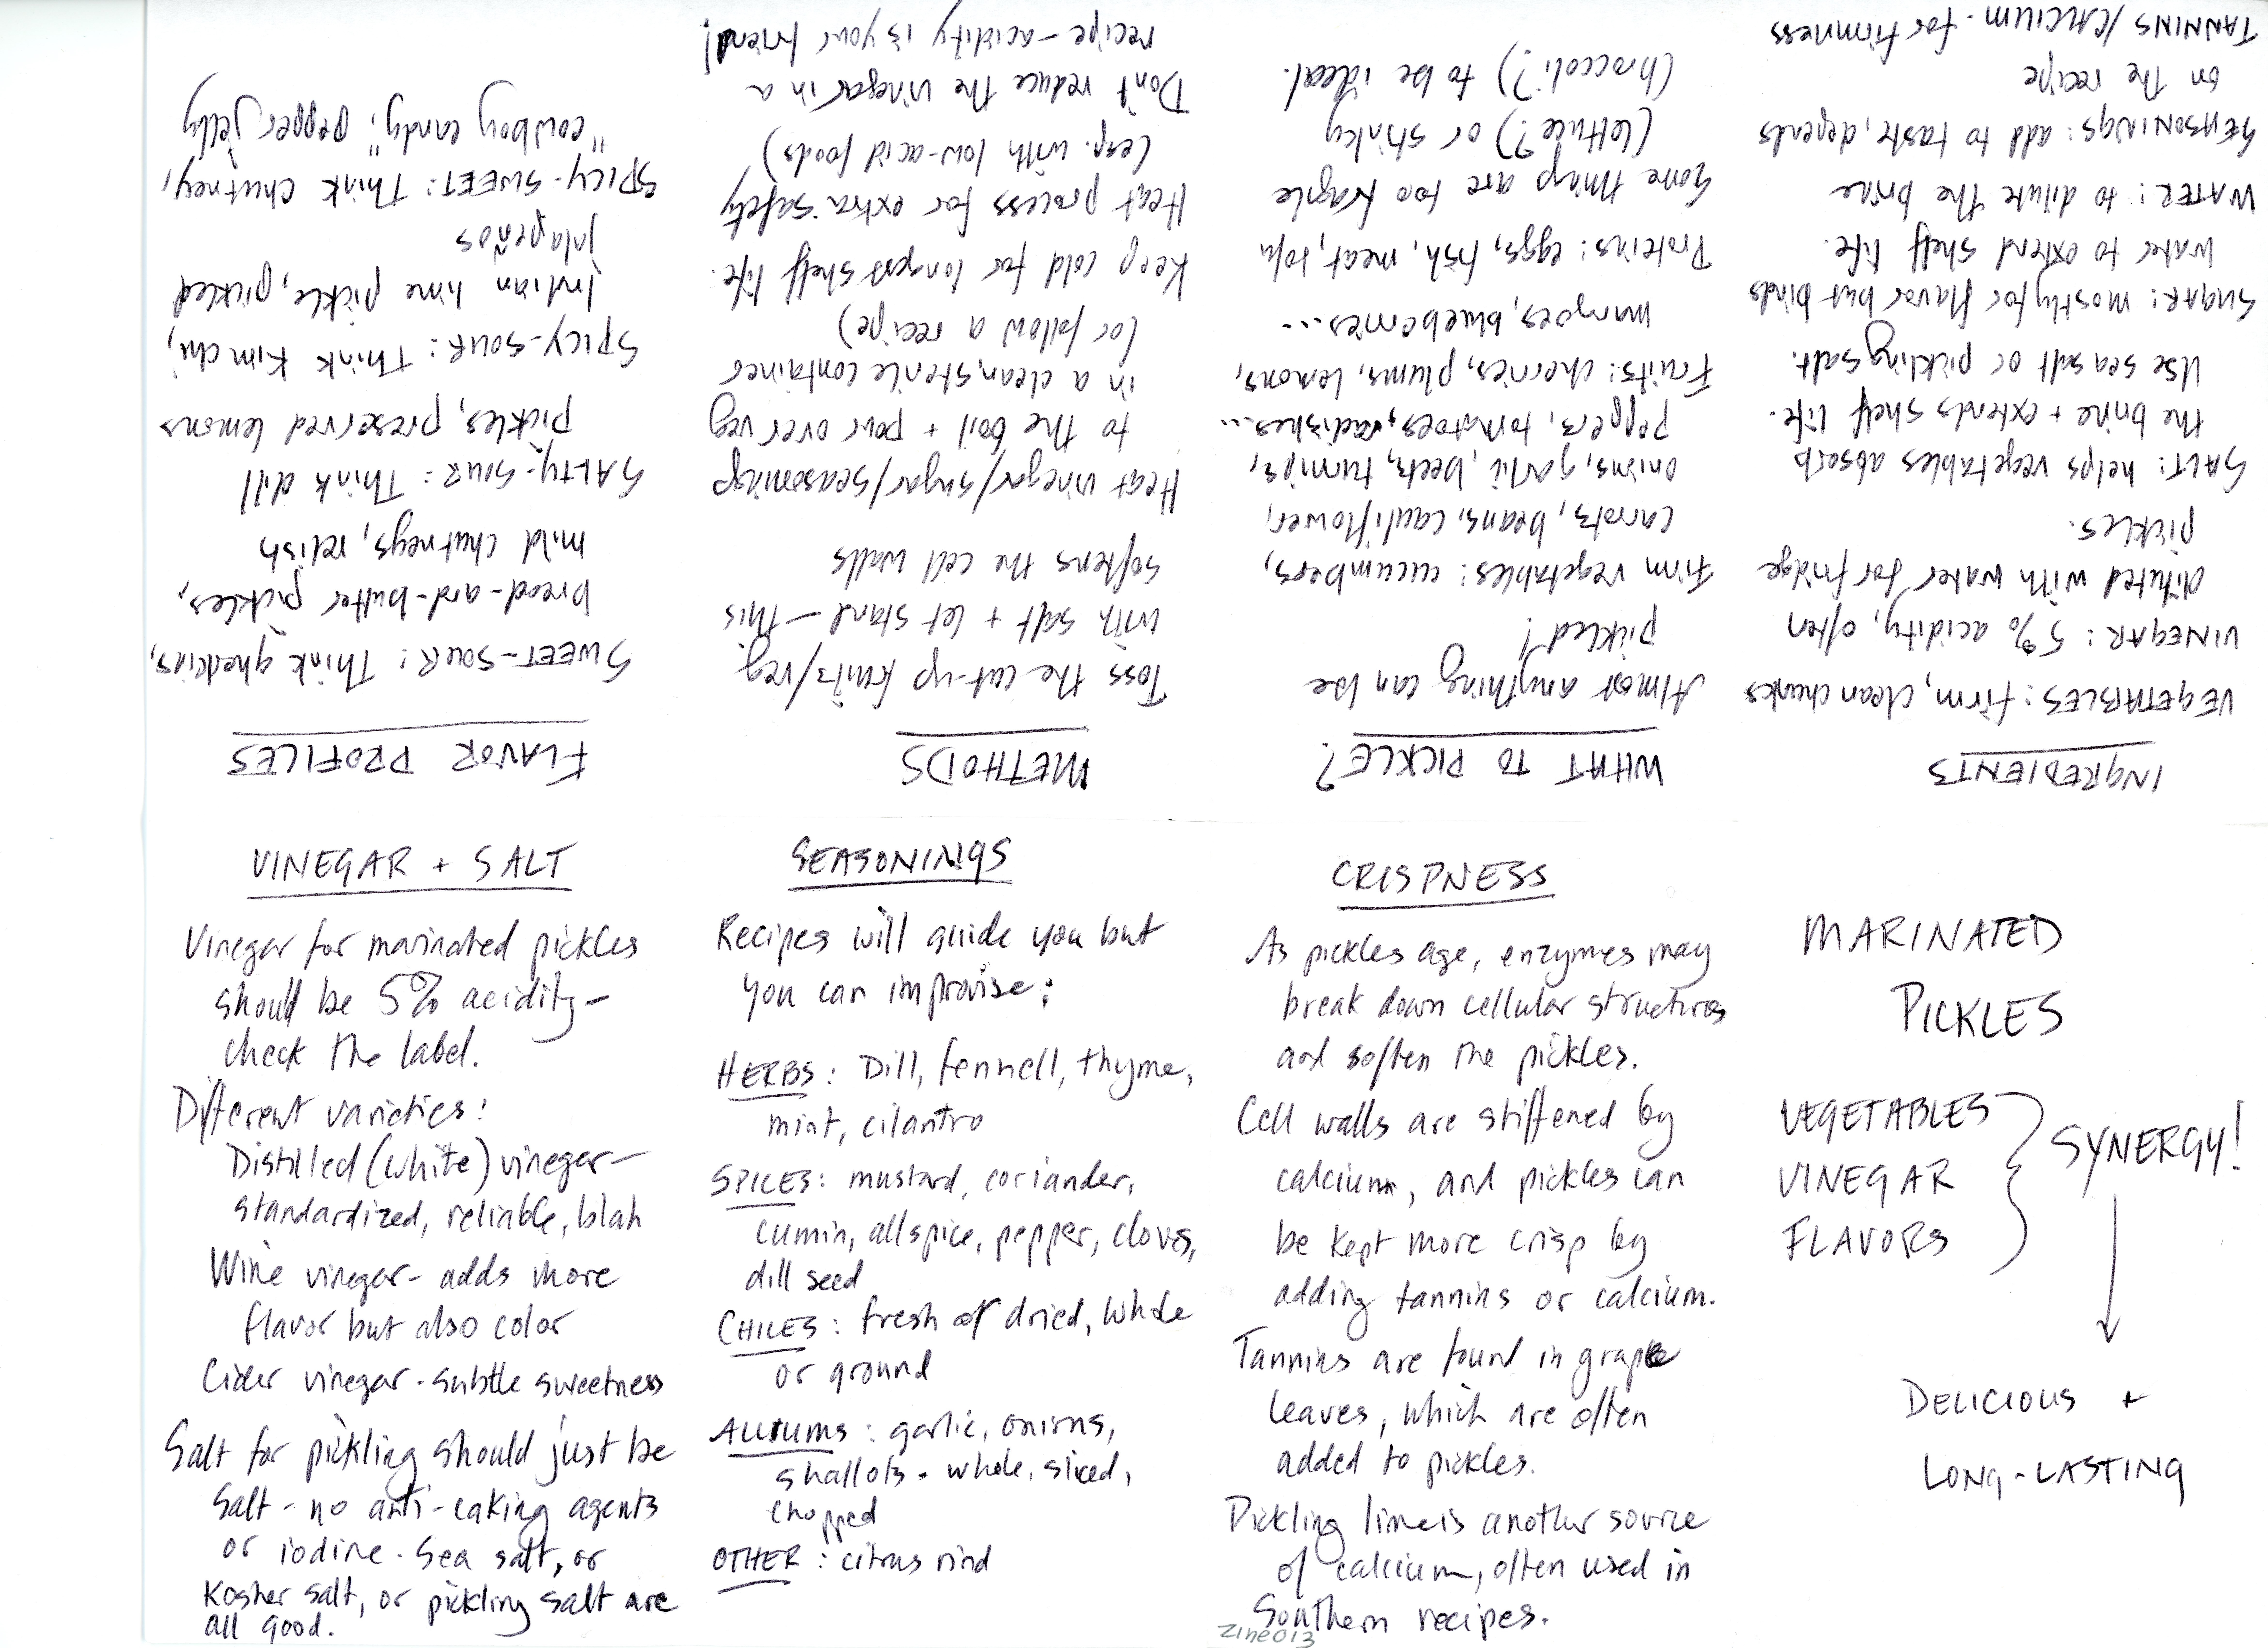 MARINATED
PICKLES
VEGETABLES
VINEGAR
FLAVORS
SYNERGY!
DELICIOUS +
LONG-LASTING
INGREDIENTS
VEGETABLES: firm, clean chunks
VINEGAR: 5% acidity, often
diluted with water for fridge
pickles.
SALT: helps vegetables absorb
the brine + extends shelf life.
Use sea salt or pickling salt.
SUGAR: mostly for flavor but binds
water to extend shelf life.
WATER: to dilute the brine
SEASONINGS: add to taste, depends
on the recipe
TANNINS/CALCIUM - for firmness
WHAT TO PICKLE?
Almost anything can be
pickled!
Firm vegetables: cucumbers,
carrots, beans, cauliflower,
onions, garlic, beets, turnips,
peppers, tomatoes, radishes...
Fruits: cherries, plums, lemons,
mangoes, blueberries...
Proteins: eggs, fish, meat, tofu
Some things are too fragile
(lettuce?) or stinky
(broccoli?) to be ideal.
METHODS
Toss the cut-up fruits/veg
with salt + let stand - this
softens the cell walls
Heat vinegar/sugar/seasonings
to the boil + pour over veg
in a clean, sterile container
(or follow a recipe)
Keep cold for longest shelf life.
Heat process for extra safety
(esp. with low-acid foods)
Don't reduce the vinegar in a
recipe - acidity is your friend!
FLAVOR PROFILES
SWEET-SOUR: Think gherkins,
bread-and-butter pickles,
mild chutneys, relish
SALTY-SOUR: Think dill
pickles, preserved lemons
SPICY-SOUR: Think Kimchi,
Indian lime pickle, pickled
jalapeños
SPICY-SWEET: Think chutney,
"cowboy candy", pepper jelly
VINEGAR + SALT
Vinegar for marinated pickles
should be 5% acidity -
check the label.
Different varieties:
Distilled (white) vinegar -
standardized, reliable, blah
Wine vinegar - adds more
flavor but also color
Cider vinegar - subtle sweetness
Salt for pickling should just be
salt - no anti-caking agents
or iodine. Sea salt, or
Kosher salt, or pickling salt are
all good.
SEASONINGS
Recipes will guide you but
you can improvise:
HERBS: Dill, fennell, thyme,
mint, cilantro
SPICES: mustard, coriander,
cumin, allspice, pepper, cloves,
dill seed
CHILES: fresh or dried, whole
or ground
ALLIUMS: garlic, onions,
shallots - whole, sliced,
chopped
OTHER: citrus rind
CRISPNESS
As pickles age, enzymes may
break down cellular structures
and soften the pickles.
Cell walls are stiffened by
calcium, and pickles can
be kept more crisp by
adding tannins or calcium.
Tannins are found in grape
leaves, which are often
added to pickles.
Pickling lime is another source
of calcium, often used in
Southern recipes.
Zine013